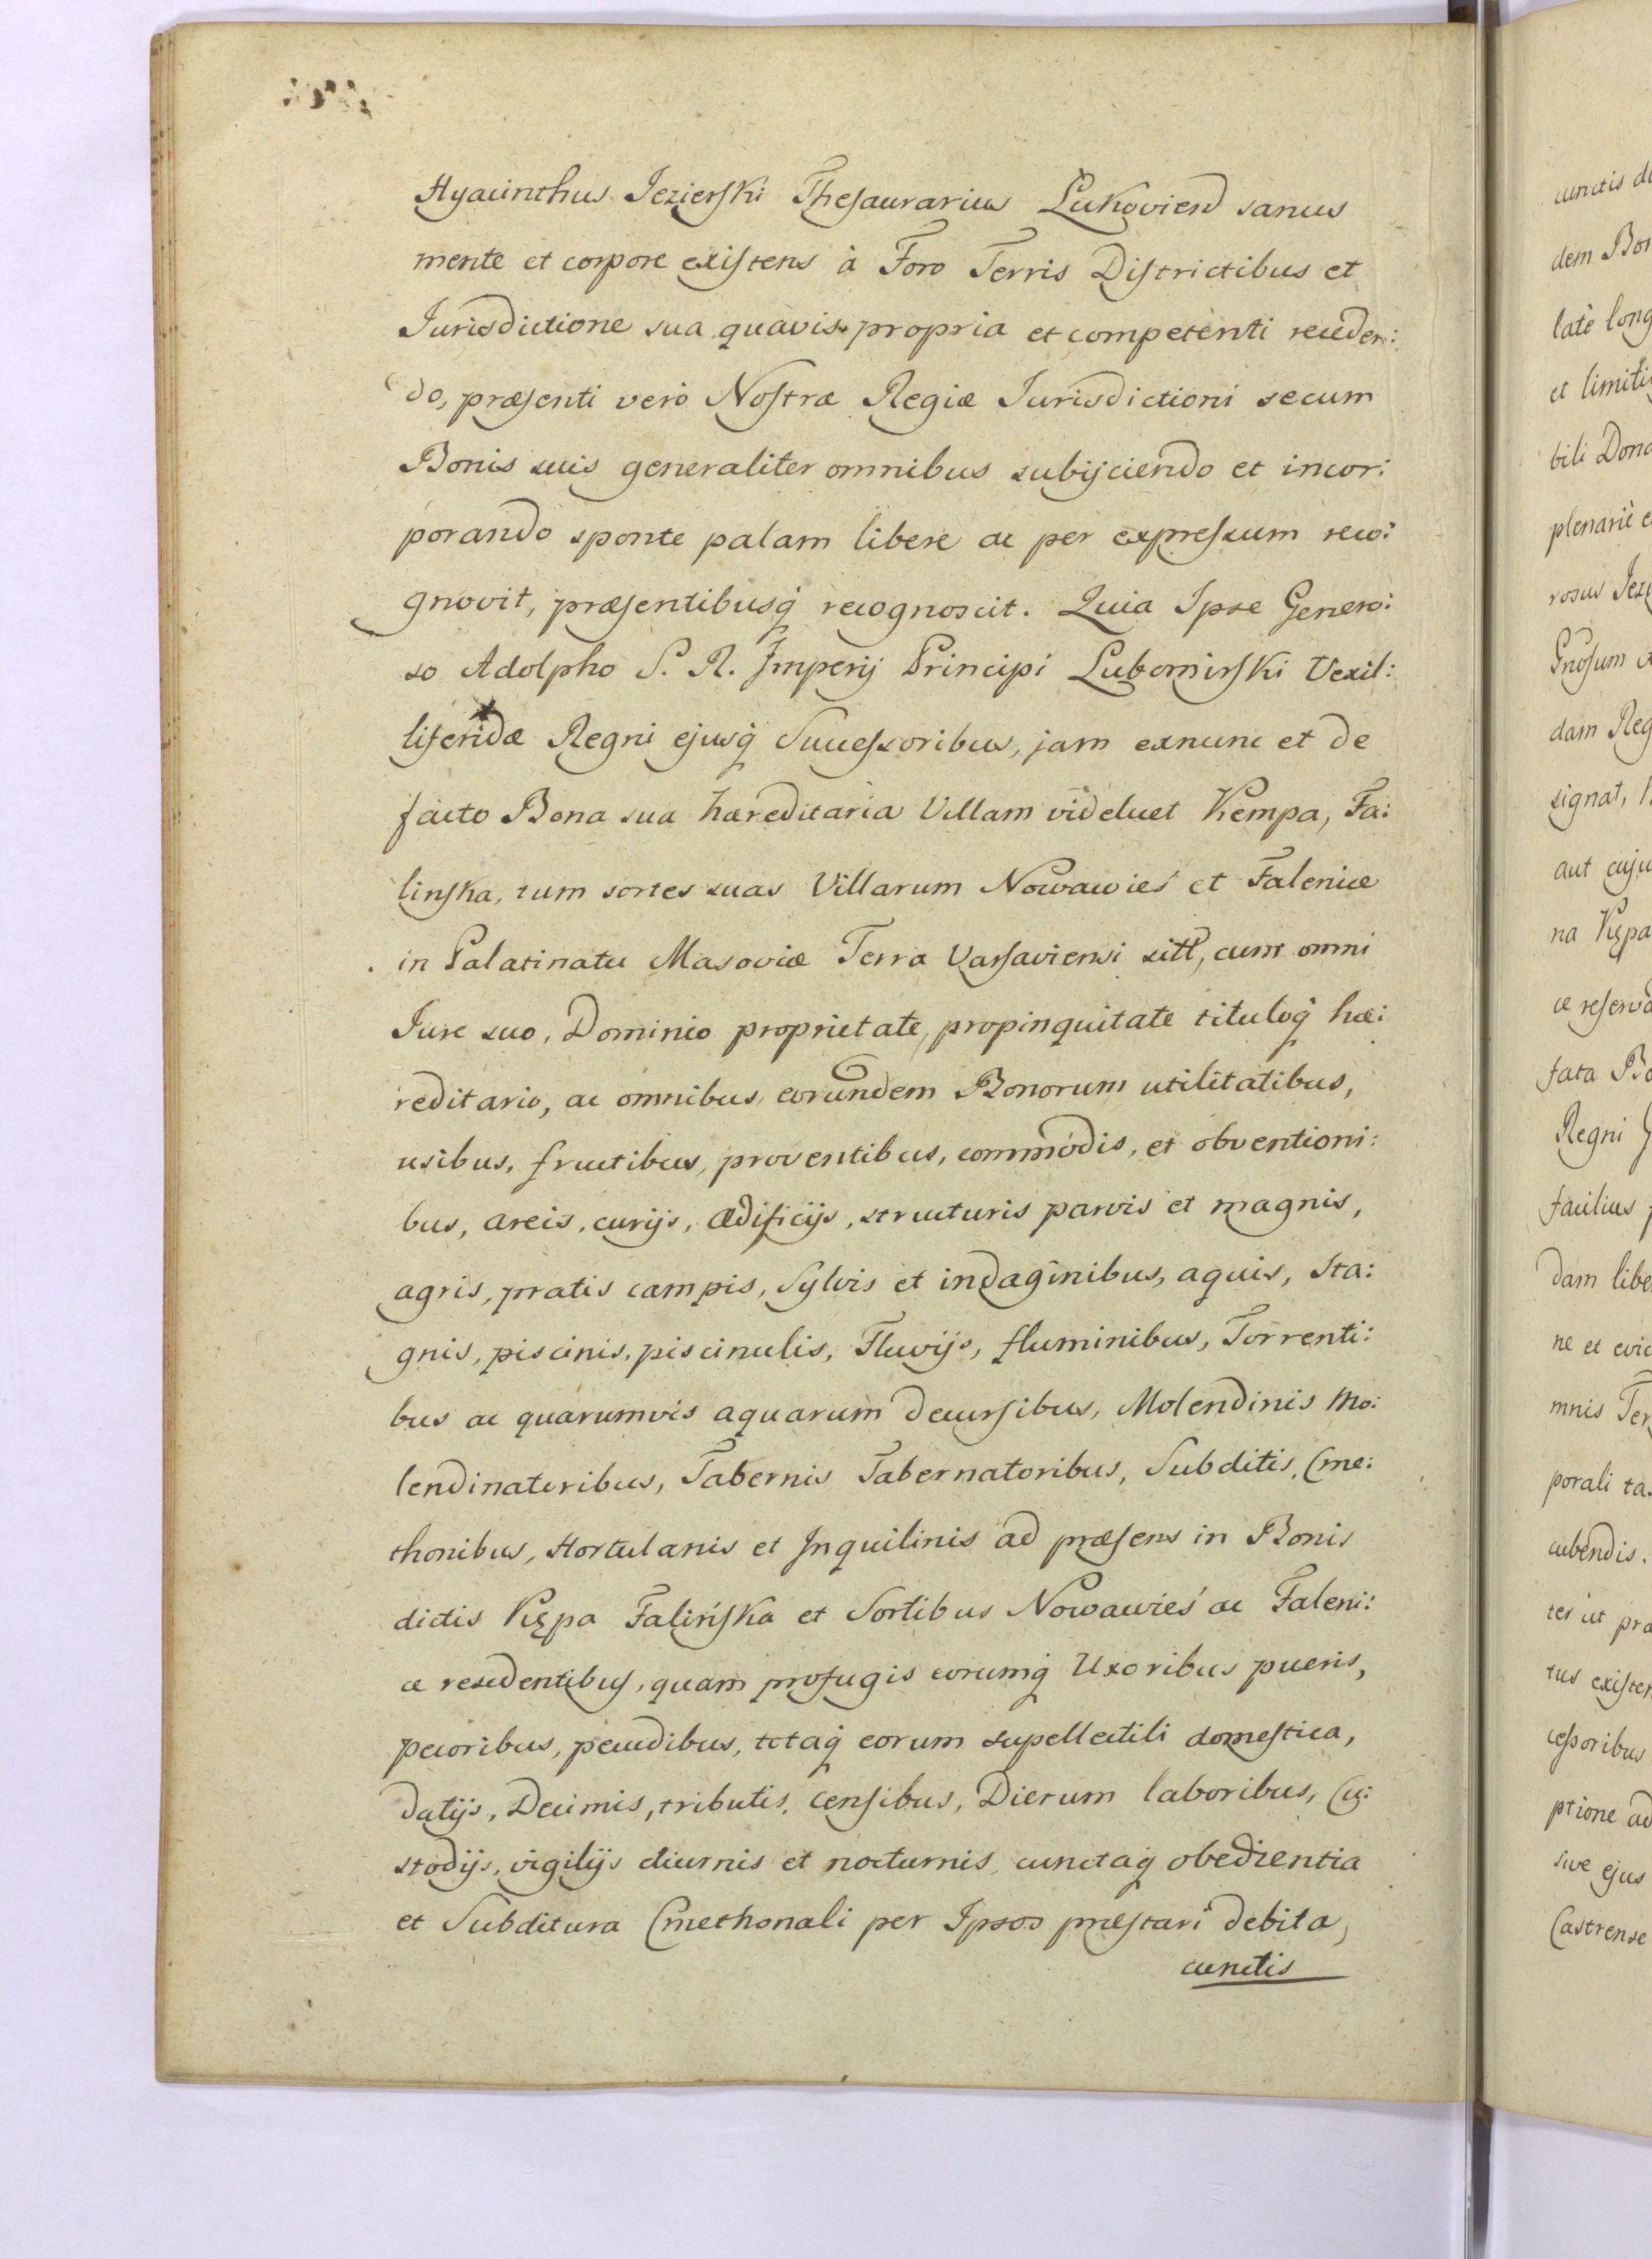 Hyacinthus Jezierski Thesaurarius Lukovien sanus
mente et corpore existens à Foro Terris Districtibus et
Jurisdictione sua quavis propria et competenti receden:
do, præsenti verò Nostræ Regiæ Jurisdictioni secum
Bonis suis generaliter omnibus subijciendo et incor:
porando sponte palam libere ac per expressum reco:
gnovit, præsentibusq recognoscit. Quia Ipse Genero:
so Adolpho S. R. Imperij Principi Lubomirski Vexil:
liferidæ Regni ejusq Successoribus, jam exnunc et de
facto Bona sua hæreditaria Villam videlicet Kempa, Fa:
linska, tum sortes suas Villarum Nowawieś et Falenice
in Palatinatu Masoviæ Terra Varsaviensi sitt, cum omni
Jure suo, Dominio proprietate, propinquitate tituloq hæ:
reditario, ac omnibus eorundem Bonorum utilitatibus,
usibus, fructibus, proventibus, commodis, et obventioni:
bus, areis, curijs, ædificijs, structuris parvis et magnis,
agris, pratis campis, Sylvis et indaginibus, aquis, Sta:
gnis, piscinis, piscinulis, Fluvijs, fluminibus, Torrenti:
bus ac quarumvis aquarum decursibus, Molendinis Mo:
lendinatoribus, Tabernis Tabernatoribus, Subditis, Cme:
thonibus, Hortulanis et Inquilinis ad præsens in Bonis
dictis Kępa Falińska et Sortibus Nowawieś ac Faleni:
ce residentibus, quam profugis eorumq Uxoribus pueris,
pecoribus, pecudibus, totaq eorum supellectili domestica,
datijs, Decimis, tributis, censibus, Dierum laboribus, Cu:
stodijs, vigilijs diurnis et nocturnis, cunctaq obedientia
et Subditura Cmethonali per Ipsos præstari debita,
cunctis
cunctis
dem Bon
latè long
et limiti
bili Dona
plenariè e
rosus Jezi
Gnosum
dam Reg
signat,
aut cuju
na Kępa
ce reserva
fata Bo
Regni
facilius
dam libe
ne et evic
mnis Ter
porali ta
cubendis.
tes ut pra
tus existen
cessoribus
ptione ad
sive ejus
Castrense